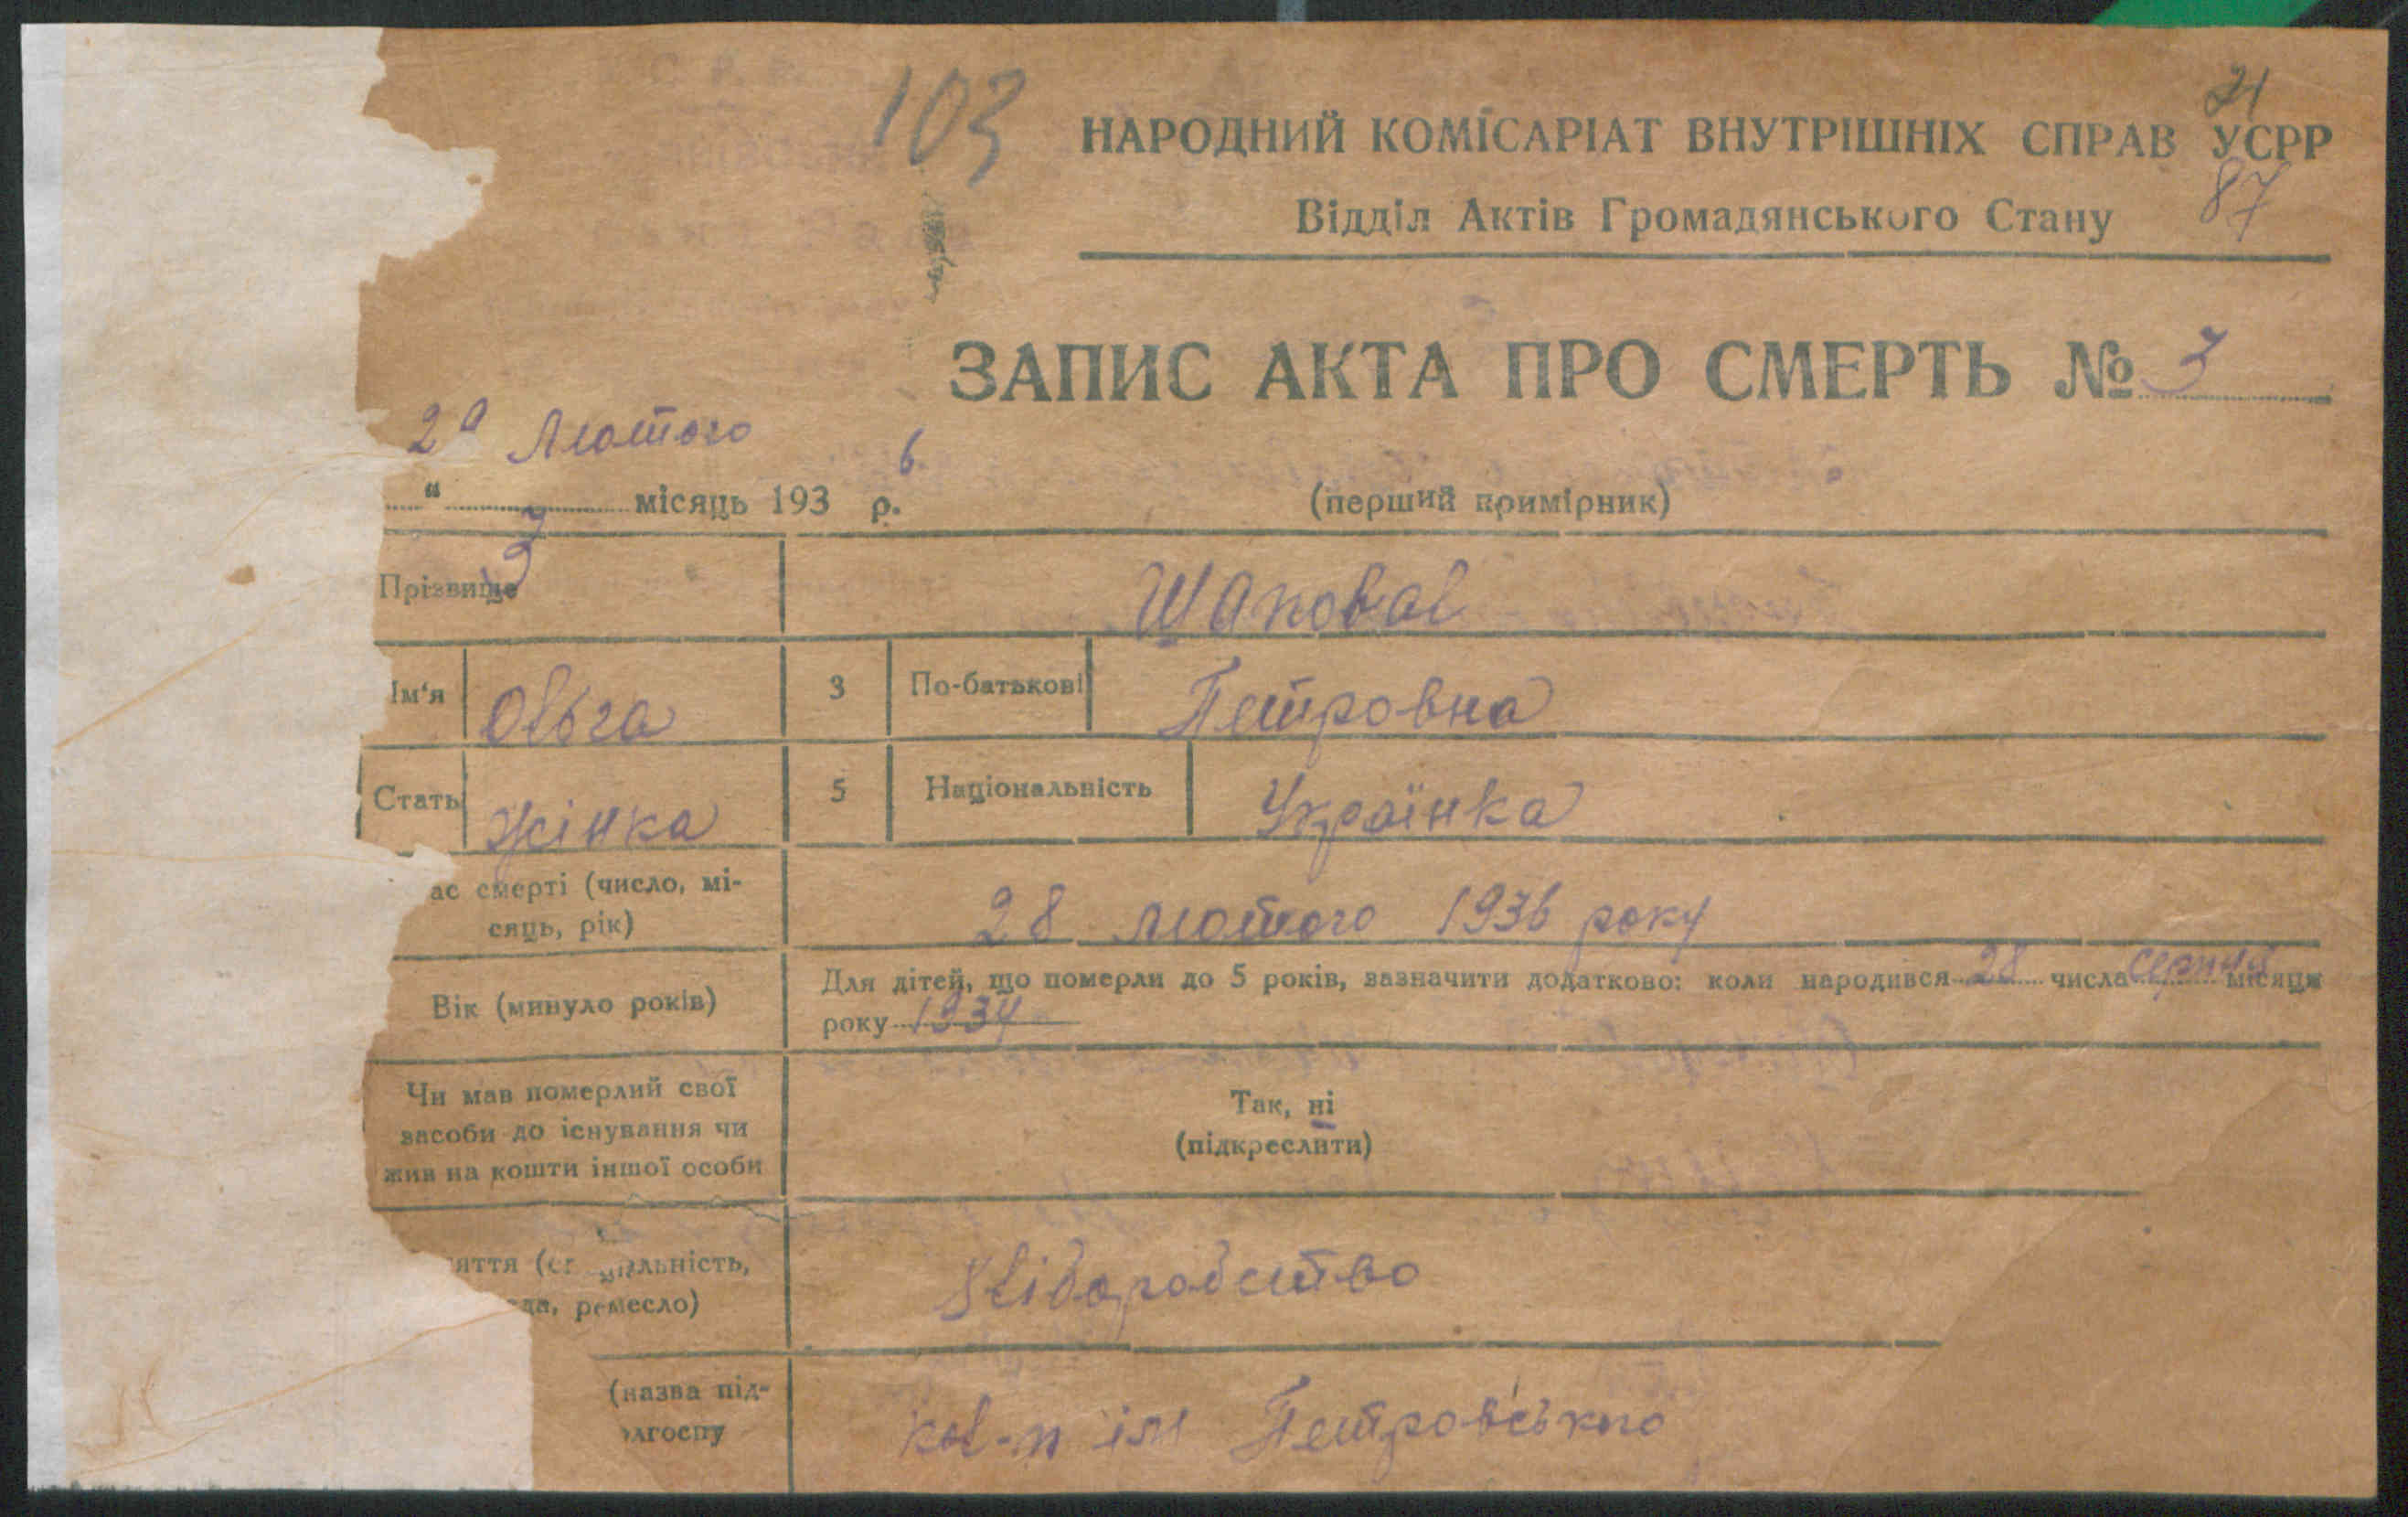 103
21
НАРОДНИЙ КОМІСАРІАТ ВНУТРІШНІХ СПРАВ УСРР
87
Відділ Актів Громадянського Стану
ЗАПИС АКТА ПРО СМЕРТЬ № 3
29 Лютого
" місяць 193 6 р.
(перший примірник)
3
Прізвище Шаповал
Ім'я Ольга 3 По-батькові Петровна
Стать жінка 5 Національність Українка
ас смерті (число, мі-
сяць, рік)
28 лютого 1936 року
Вік (минуло років)
Для дітей, що померли до 5 років, зазначити додатково: коли народився 28 числа серпня місяця
року 1934
Чи мав померлий свої
засоби до існування чи
жив на кошти іншої особи
Так, ні
(підкреслити)
яття (с альність,
да, ремесло)
Хліборобство
(назва під-
лгоспу
кол-п ім Петровського